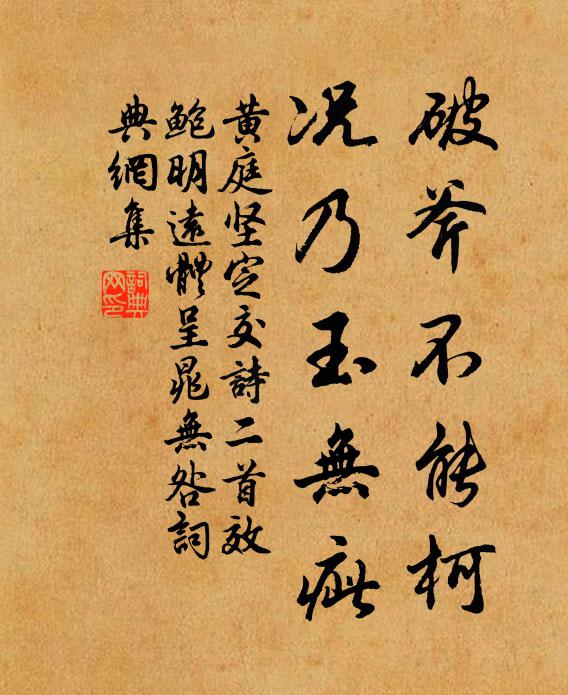 破斧不能柯
况乃玉無疵
黄庭坚定交詩二首效
鮑明遠體呈晁無咎詞
典網集
詞典網印